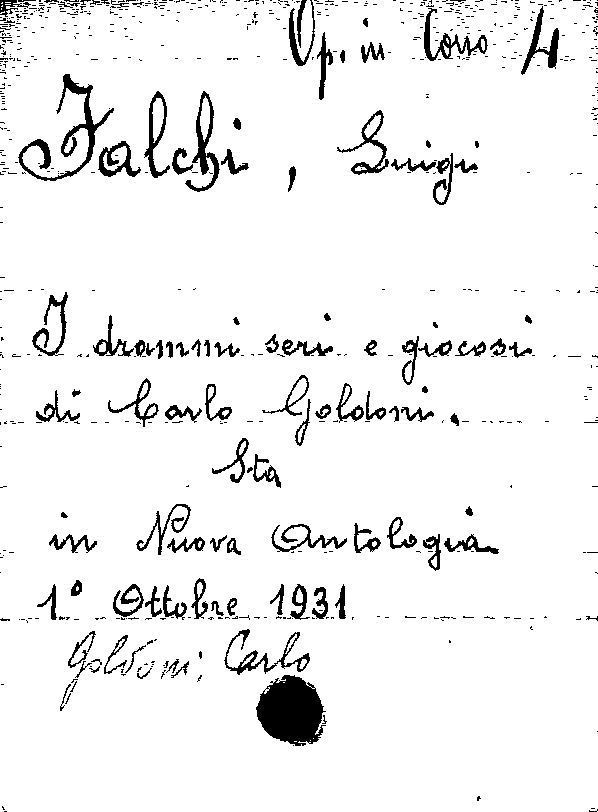 Op. in Corso 4
Falchi, Luigi
I drammi seri e giocosi
di Carlo Goldoni.
Sta
in Nuova Antologia.
1° Ottobre 1931
Goldoni, Carlo